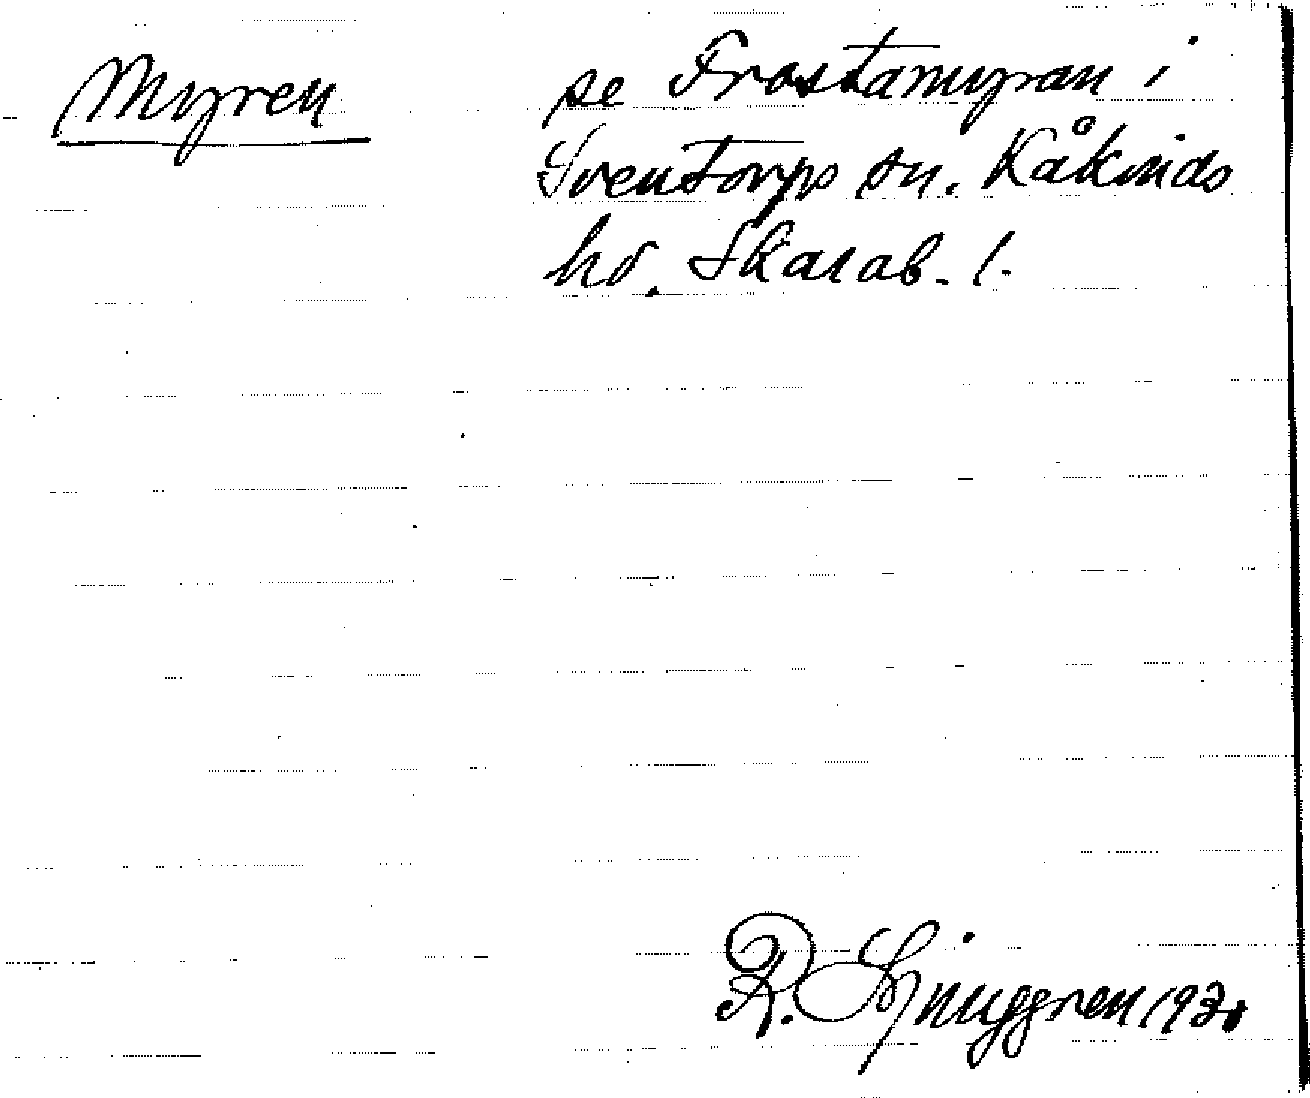 Myren
se Frostamyran i
Sventorps sn. Kåkinds
hd. Skarab. l.
R. Ljunggren 1930